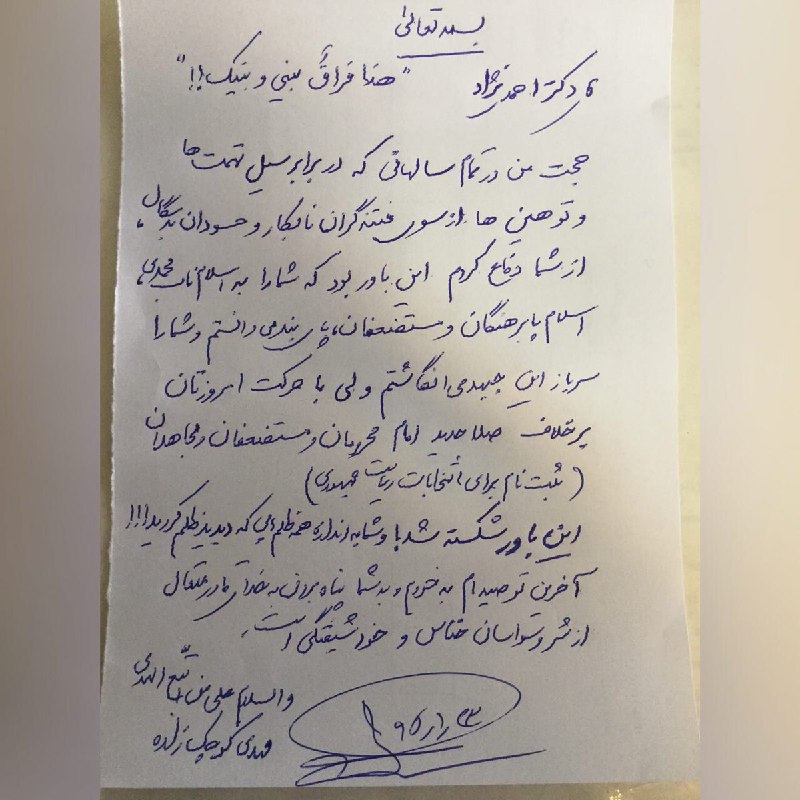 بسمه تعالی
آقای دکتر احمدی‌نژاد "هذا فراقُ بینی و بینک!!"
حجت من در تمام سالهائی که در برابر سیل تهمت ها
و توهین ها از سوی فتنه گران نابکار و حسودان بدسگال،
از شما دفاع کردم این باور بود که شما را به اسلام ناب محمدی،
اسلام پابرهنگان و مستضعفان، پای بند می دانستم و شما را
سرباز این جبهه می انگاشتم ولی با حرکت امروزتان
برخلاف صلاحدید امام محرومان و مستضعفان و مجاهدان
(ثبت نام برای انتخابات ریاست جمهوری)
این باور شکسته شد! و شما به اندازه همه ظلم هایی که دیدید ظلم کردید!!!
آخرین توصیه ام به خودم و به شما پناه بردن به خدای قادر متعال
از شر وسواسان خناس و خودشیفتگی است.
والسلام علی من اتّبع الهدی
مهدی کوچک زاده
۲۳ ر ۱ ر ۹۶